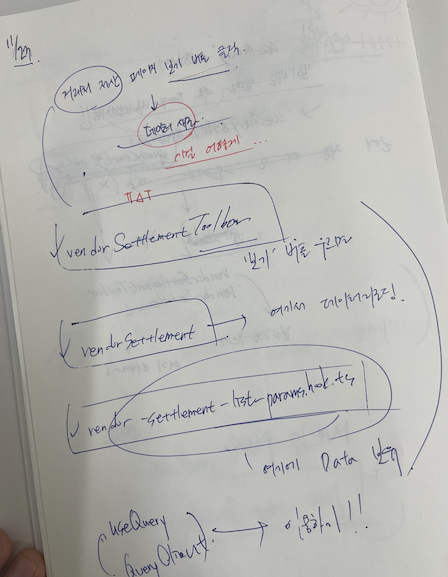 11/27.
거래처 정산 페이지 보기 버튼 클릭
↓
데이터 생산.
시점 어떻게 ...
✓ vendor Settlement Toolbar
'보기' 버튼 누르면
✓ vendor Settlement → 여기서 데이터 로딩.
✓ vendor-settlement-list-params.hook.ts
여기에 Data 받음
useQuery
QueryClient ↔ 이용하기!!